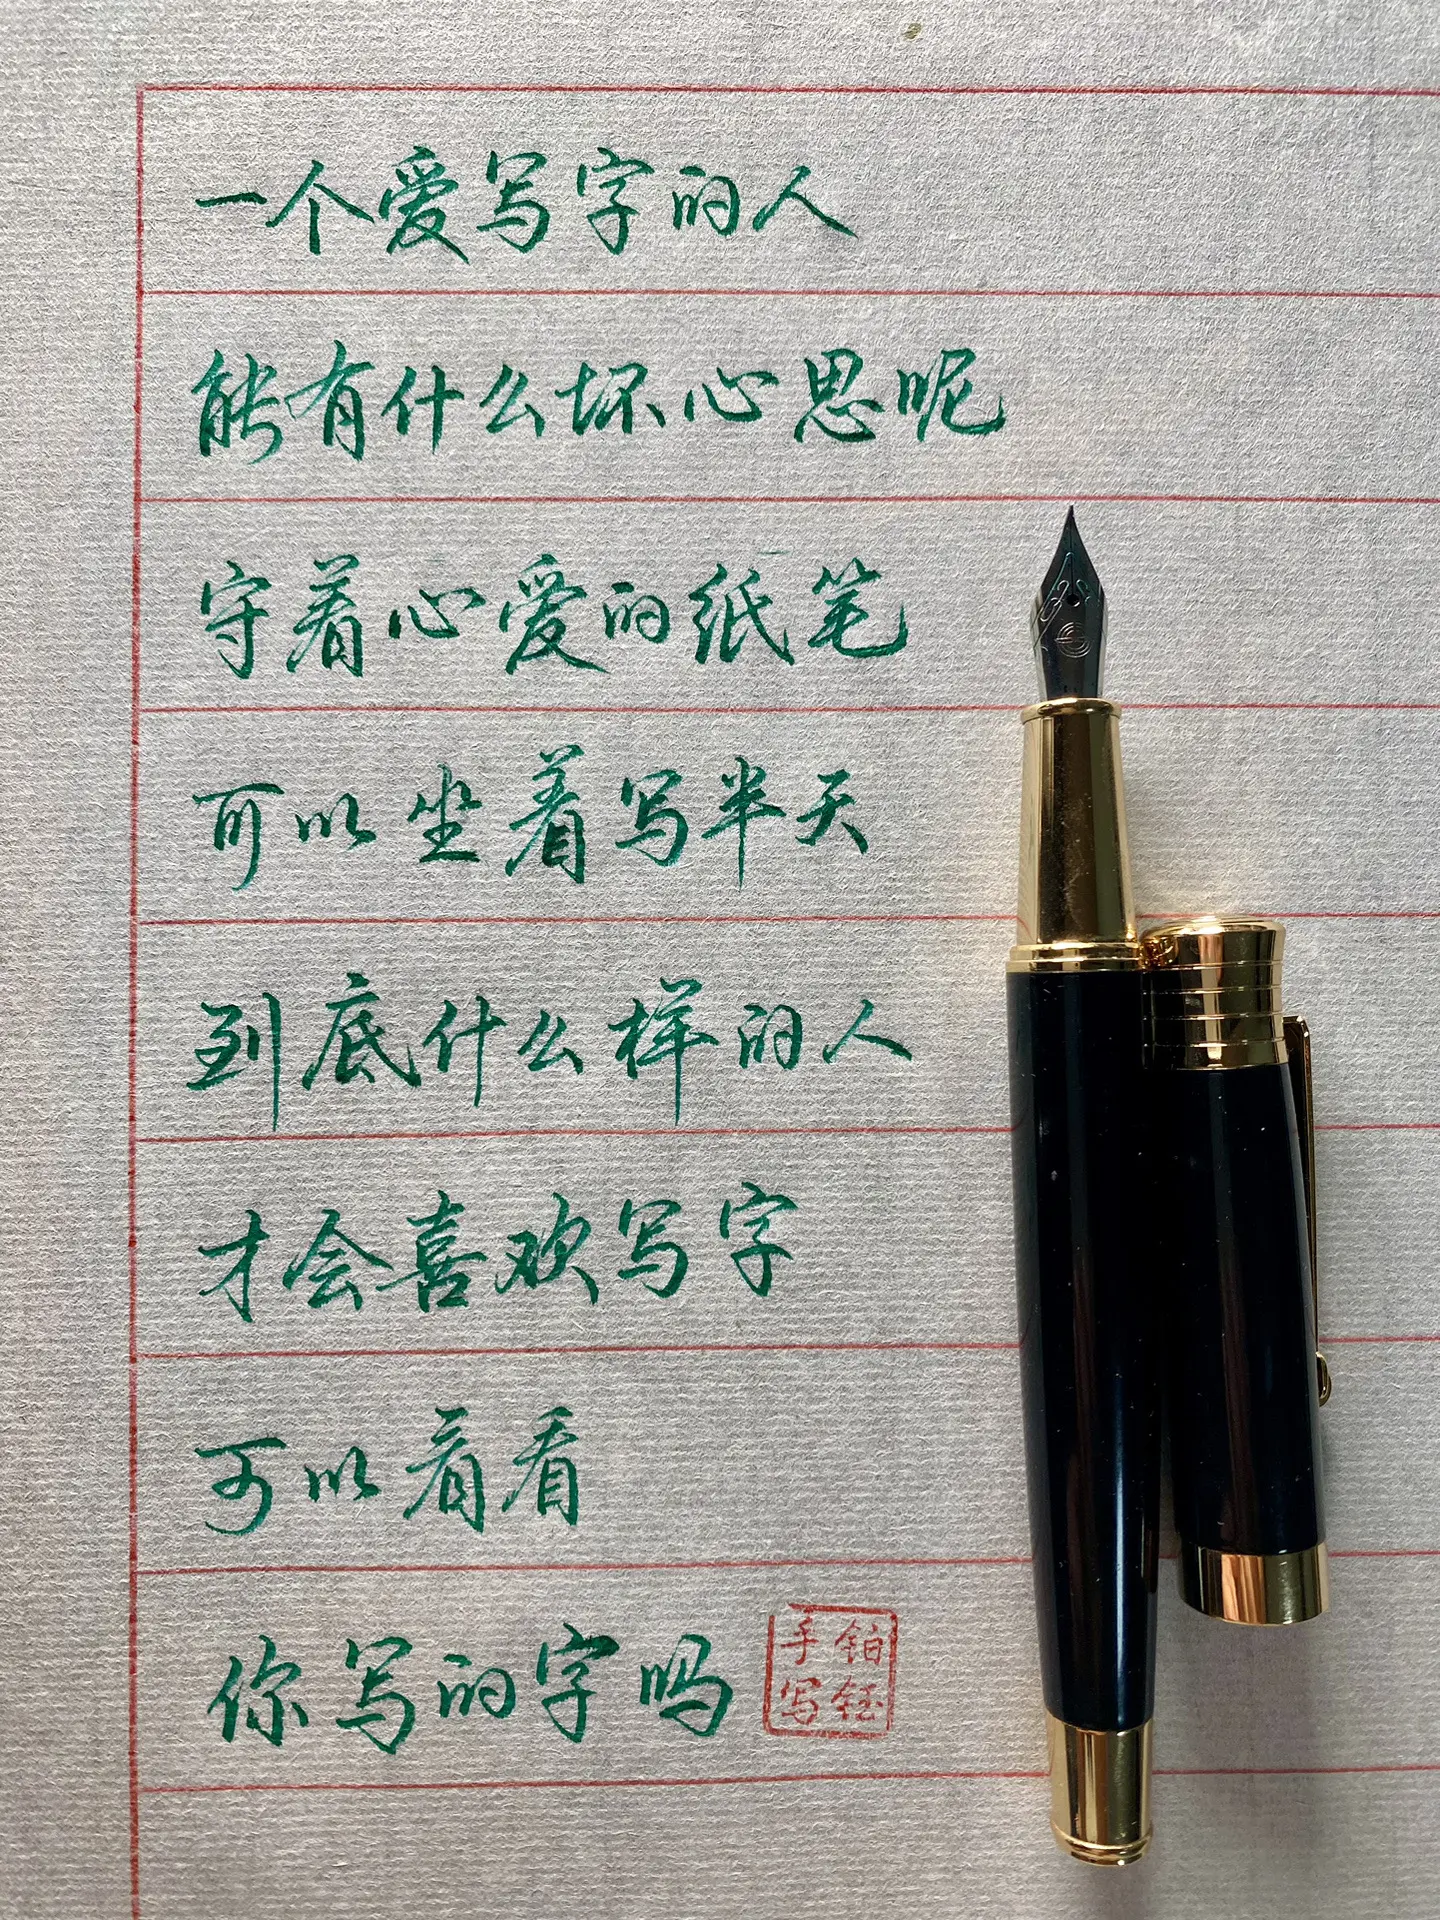 一个爱写字的人
能有什么坏心思呢
守着心爱的纸笔
可以坐着写半天
到底什么样的人
才会喜欢写字
可以看看
你写的字吗
铂钰
手写